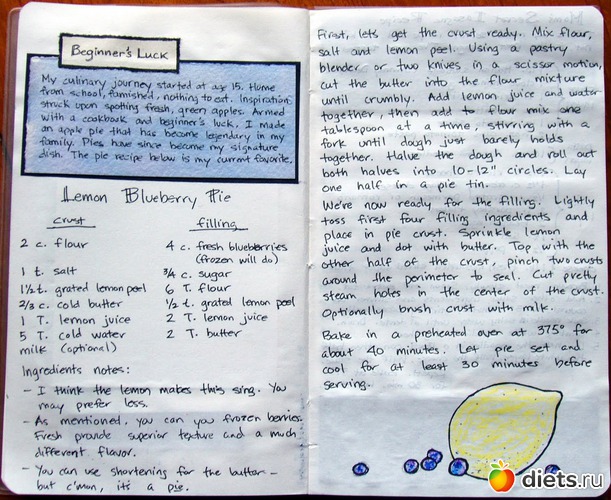 Beginner's Luck
My culinary journey started at age 15. Home
from school, famished, nothing to eat. Inspiration
struck upon spotting fresh, green apples. Armed
with a cookbook and beginner's luck. I made
an apple pie that has become legendary in my
family. Pies have since become my signature
dish. The pie recipe below is my current favorite.
Lemon Blueberry Pie
crust
2 c. flour
1 t. salt
1 1/2 t. grated lemon peel
2/3 c. cold butter
1 T. lemon juice
5 T. cold water
milk (optional)
filling
4 c. fresh blueberries
(frozen will do)
3/4 c. sugar
6 T. flour
1/2 t. grated lemon peel
2 T. lemon juice
2 T. butter
Ingredients notes:
- I think the lemon makes this sing. You
may prefer less.
- As mentioned, you can you frozen berries.
Fresh provide superior texture and a much
different flavor.
- You can use shortening for the butter -
but c'mon, it's a pie.
First, lets get the crust ready. Mix flour,
salt and lemon peel. Using a pastry
blender or two knives in a scissor motion,
cut the butter into the flour mixture
until crumbly. Add lemon juice and water
together, then add to flour mix one
tablespoon at a time, stirring with a
fork until dough just barely holds
together. Halve the dough and roll out
both halves into 10-12" circles. Lay
one half in a pie tin.
We're now ready for the filling. Lightly
toss first four filling ingredients and
place in pie crust. Sprinkle lemon
juice and dot with butter. Top with the
other half of the crust, pinch two crusts
around the perimeter to seal. Cut pretty
steam holes in the center of the crust.
Optionally brush crust with milk.
Bake in a preheated oven at 375° for
about 40 minutes. Let pie set and
cool for at least 30 minutes before
serving.
diets.ru